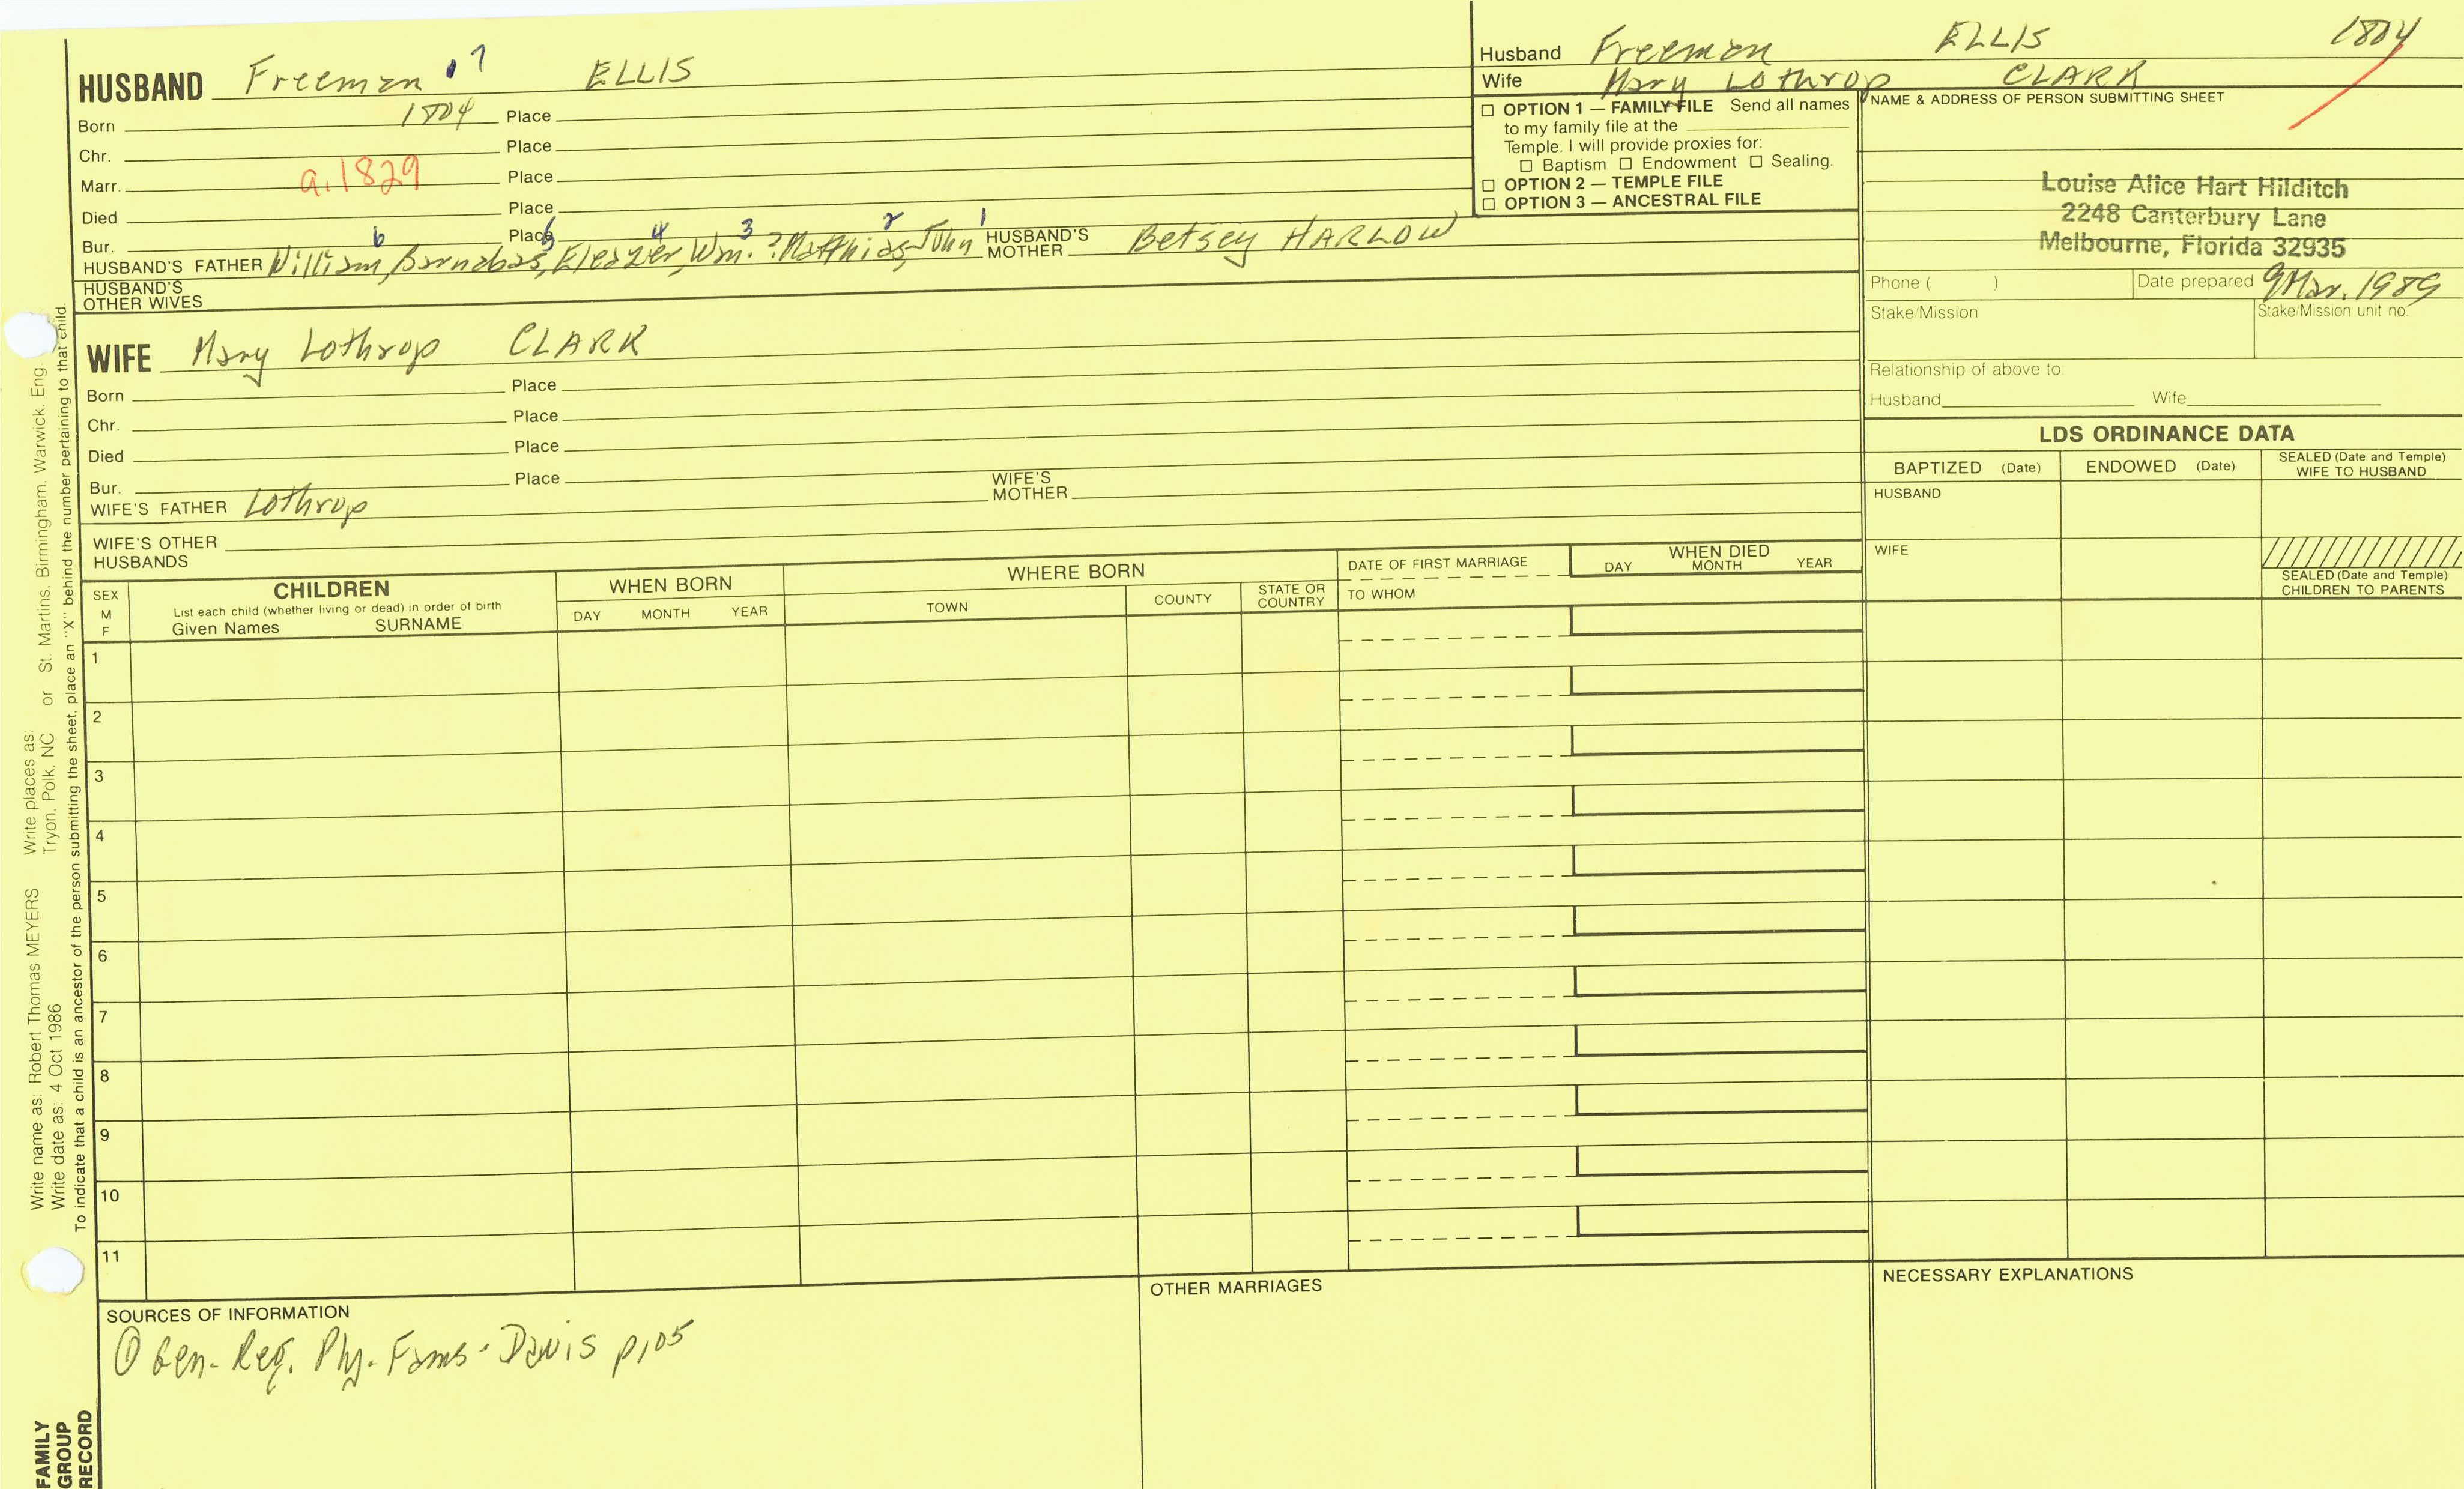 HUSBAND Freeman 7 ELLIS
Born 1804 Place
Chr. Place
Marr. a.1829 Place
Died Place
Bur. Place
HUSBAND'S FATHER William, 6 Barnabas, 5 Eleazer, 4 Wm. 3 ? Matthias, 2 John 1 HUSBAND'S MOTHER Betsey HARLOW
HUSBAND'S OTHER WIVES
WIFE Mary Lothrop CLARK
Born Place
Chr. Place
Died Place
Bur. Place
WIFE'S FATHER Lothrop WIFE'S MOTHER
WIFE'S OTHER HUSBANDS
Husband Freeman ELLIS 1804
Wife Mary Lothrop CLARK
OPTION 1 — FAMILY FILE Send all names
to my family file at the
Temple. I will provide proxies for:
Baptism Endowment Sealing.
OPTION 2 — TEMPLE FILE
OPTION 3 — ANCESTRAL FILE
NAME & ADDRESS OF PERSON SUBMITTING SHEET
Louise Alice Hart Hilditch
2248 Canterbury Lane
Melbourne, Florida 32935
Phone ( ) Date prepared 9 Mar. 1989
Stake/Mission Stake/Mission unit no.
Relationship of above to
Husband Wife
LDS ORDINANCE DATA
BAPTIZED (Date) ENDOWED (Date) SEALED (Date and Temple) WIFE TO HUSBAND
HUSBAND
WIFE
SEALED (Date and Temple) CHILDREN TO PARENTS
SEX M F
CHILDREN
List each child (whether living or dead) in order of birth
Given Names SURNAME
WHEN BORN
DAY MONTH YEAR
WHERE BORN
TOWN COUNTY STATE OR COUNTRY
DATE OF FIRST MARRIAGE
TO WHOM
WHEN DIED
DAY MONTH YEAR
1
2
3
4
5
6
7
8
9
10
11
SOURCES OF INFORMATION
① Gen. Reg. Ply. Fams. Davis p105
OTHER MARRIAGES
NECESSARY EXPLANATIONS
Write name as: Robert Thomas MEYERS Write places as:
Write date as: 4 Oct 1986 Tryon, Polk, NC or St. Martins, Birmingham, Warwick, Eng.
To indicate that a child is an ancestor of the person submitting the sheet, place an "X" behind the number pertaining to that child.
FAMILY
GROUP
RECORD